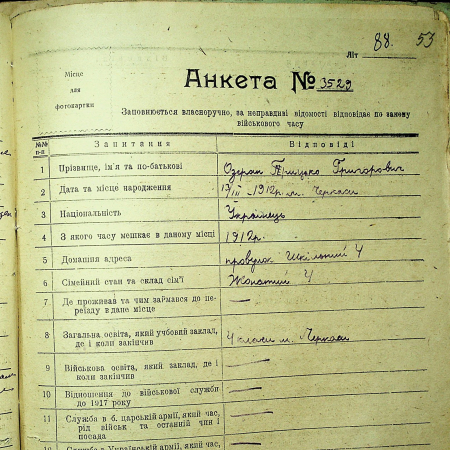 Літ 88. 53
Місце
для
фотокартки
Анкета № 3529
Заповнюється власноручно, за неправдиві відомості відповідає по закону
військового часу
№№ п-п Запитання Відповіді
1 Прізвище, ім'я та по-батькові Григорович
2 Дата та місце народження 1912р. м. Черкаси
3 Національність Українець
4 З якого часу мешкає в даному місці 1912р.
5 Домашня адреса провулок Шкільний 4
6 Сімейний стан та склад сім'ї Жонатий 4
7 Де проживав та чим займався до пе-
реїзду в дане місце —
8 Загальна освіта, який учбовий заклад,
де і коли закінчив 4 класи м. Черкаси
9 Військова освіта, який заклад, де і
коли закінчив —
10 Відношення до військової служби
до 1917 року —
11 Служба в б. царській армії, який час,
рід військ та останній чин і
посада —
Служба в Українській армії, який час,